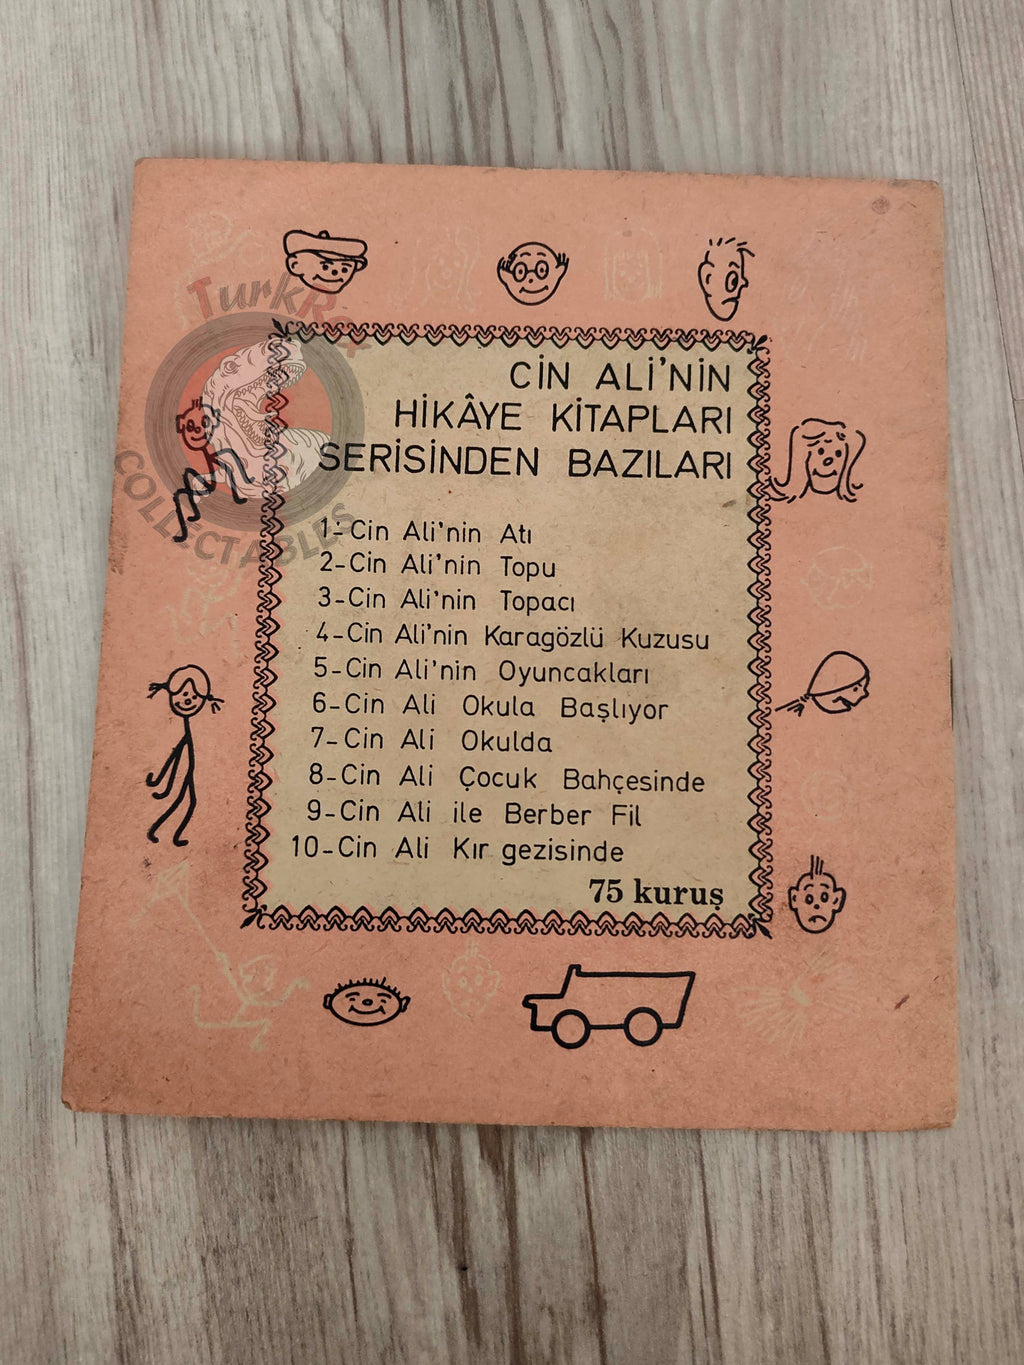 CİN ALİ'NİN
HİKÂYE KİTAPLARI
SERİSİNDEN BAZILARI
1-Cin Ali'nin Atı
2-Cin Ali'nin Topu
3-Cin Ali'nin Topacı
4-Cin Ali'nin Karagözlü Kuzusu
5-Cin Ali'nin Oyuncakları
6-Cin Ali Okula Başlıyor
7-Cin Ali Okulda
8-Cin Ali Çocuk Bahçesinde
9-Cin Ali ile Berber Fil
10-Cin Ali Kır gezisinde
75 kuruş
TurkRex
COLLECTABLES